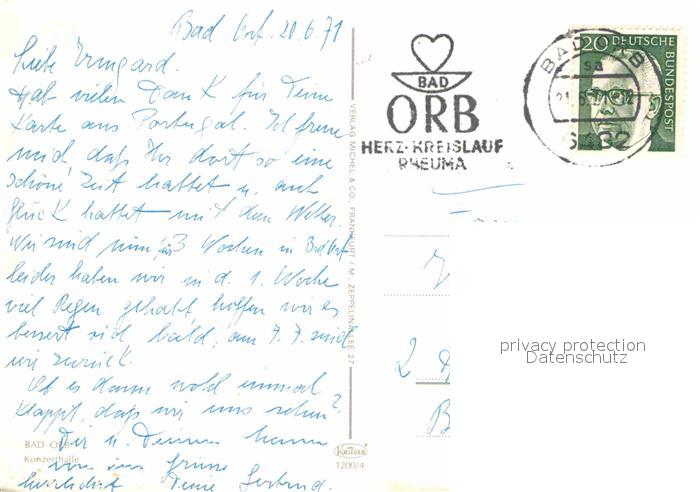 Bad Orb. 20.6.71
Liebe Irmgard.
Hab vielen Dank für Deine
Karte aus Portugal. Ich freue
mich, daß Ihr dort so eine
schöne Zeit hattet u. auch
Glück hattet mit dem Wetter.
Wir sind nun für 3 Wochen in Bad Orb
leider haben wir in d. 1. Woche
viel Regen gehabt, hoffen wir es
bessert sich bald, am 7.7. sind
wir zurück.
Ob es dann wohl einmal
klappt, daß wir uns sehen?
Dir u. Deinem Mann
von uns Grüße
herzlichst Deine Gertrud.
BAD ORB
Konzerthalle
VERLAG MICHEL & CO., FRANKFURT / M. ZEPPELINALLEE 27
KRÜGER
1200/4
BAD
ORB
HERZ-KREISLAUF
RHEUMA
BAD ORB
sa
21.6.71-12
6482
20 DEUTSCHE
BUNDESPOST
2
B
privacy protection
Datenschutz